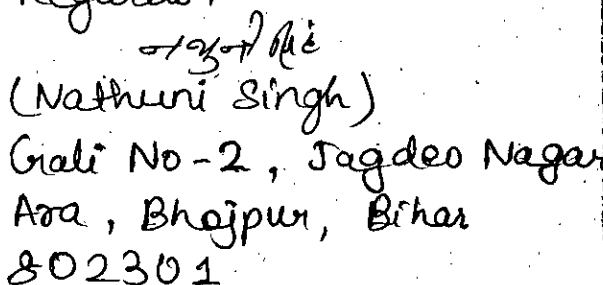 Regards,
नथुनी सिंह
(Nathuni Singh)
Gali No-2, Jagdeo Nagar
Ara, Bhojpur, Bihar
802301